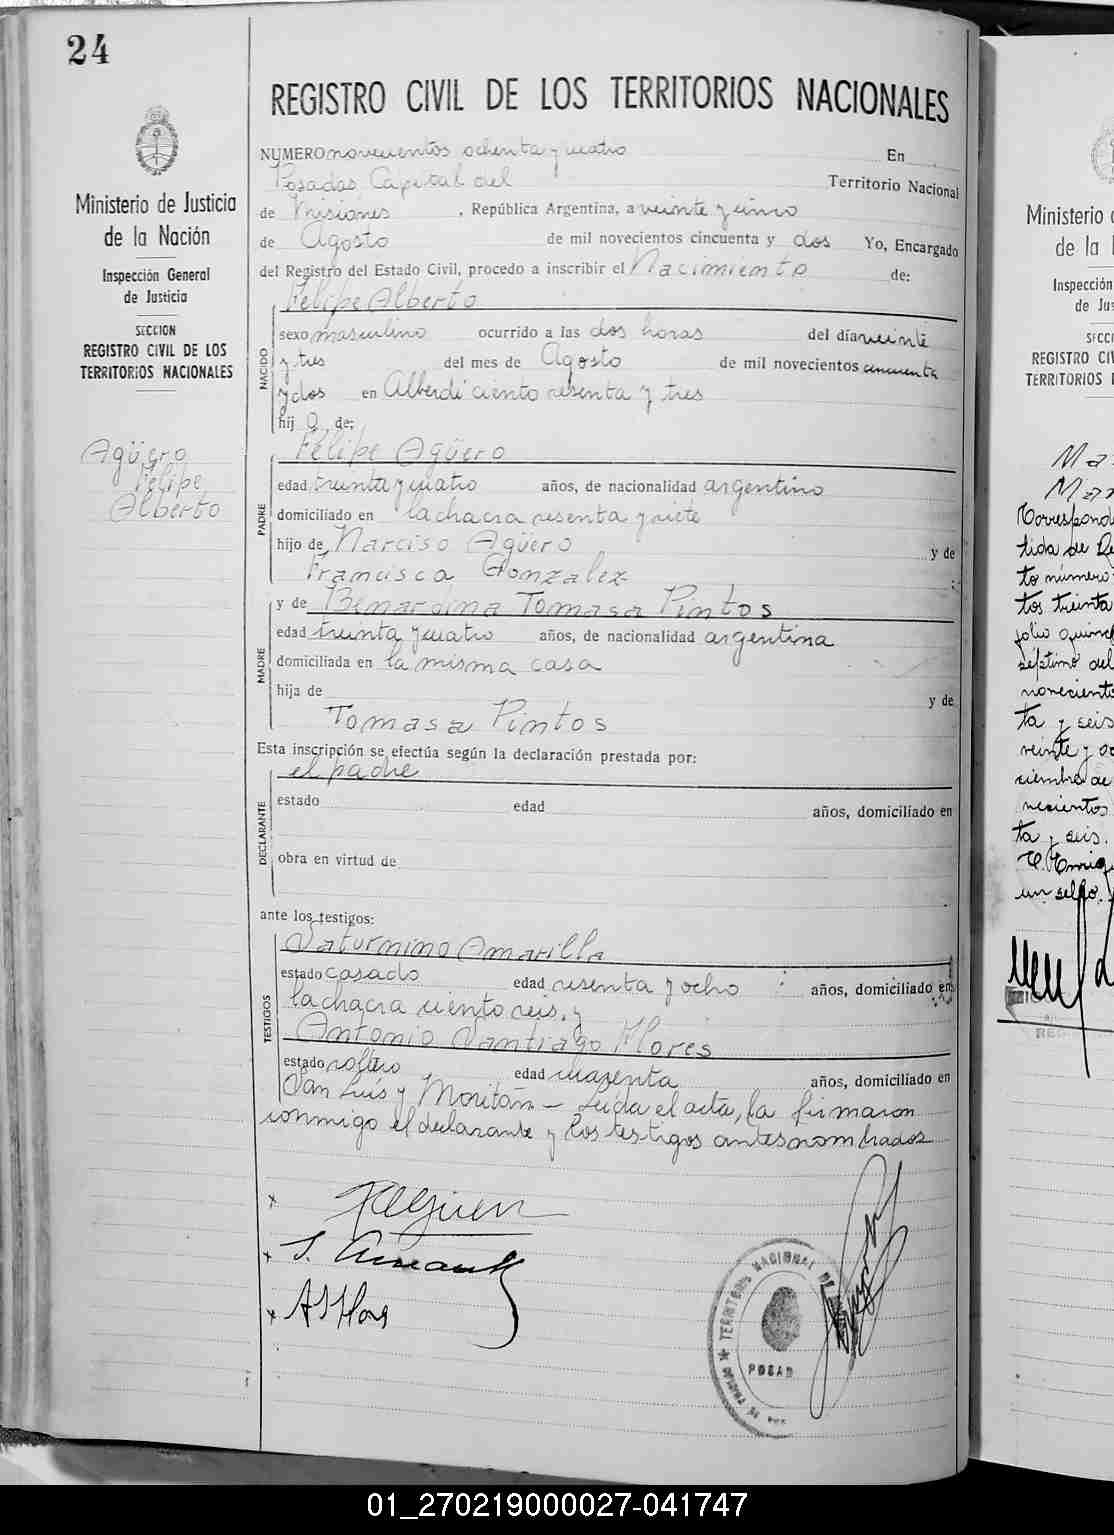 24
REGISTRO CIVIL DE LOS TERRITORIOS NACIONALES
Ministerio de Justicia
de la Nación
Inspección General
de Justicia
SECCION
REGISTRO CIVIL DE LOS
TERRITORIOS NACIONALES
Agüero
Felipe
Alberto
NUMERO novecientos ochenta y cuatro En
Posadas, Capital del Territorio Nacional
de Misiones, República Argentina, a veinte y cinco
de Agosto de mil novecientos cincuenta y dos Yo, Encargado
del Registro del Estado Civil, procedo a inscribir el Nacimiento de:
NACIDO
Felipe Alberto
sexo masculino ocurrido a las dos horas del día veinte
y tres del mes de Agosto de mil novecientos cincuenta
y dos en Alberdi ciento sesenta y tres
hij o de:
PADRE
Felipe Agüero
edad treinta y cuatro años, de nacionalidad argentino
domiciliado en la chacra sesenta y siete
hijo de Narciso Agüero y de
Francisca Gonzalez
MADRE
y de Benardina Tomasa Pintos
edad treinta y cuatro años, de nacionalidad argentina
domiciliada en la misma casa
hija de y de
Tomasa Pintos
Esta inscripción se efectúa según la declaración prestada por:
DECLARANTE
el padre
estado edad años, domiciliado en
obra en virtud de
ante los testigos:
TESTIGOS
Saturnino Amarilla
estado casado edad sesenta y ocho años, domiciliado en
la chacra ciento seis, y
Antonio Santiago Flores
estado soltero edad cuarenta años, domiciliado en
San Luís y Moritán - Leída el acta, la firmaron
conmigo el declarante y los testigos antes nombrados
TERRITORIO NACIONAL DE
POSAD
Ministerio d
de la
Inspección
de Jus
SECC
REGISTRO CI
TERRITORIOS
Ma
Mar
Correspond
tida de
to número
tos treinta
folio quince
séptimo del
novecientos
ta y seis
veinte y oc
ciembre de
vecientos
ta y seis.
un sello.
01_270219000027-041747